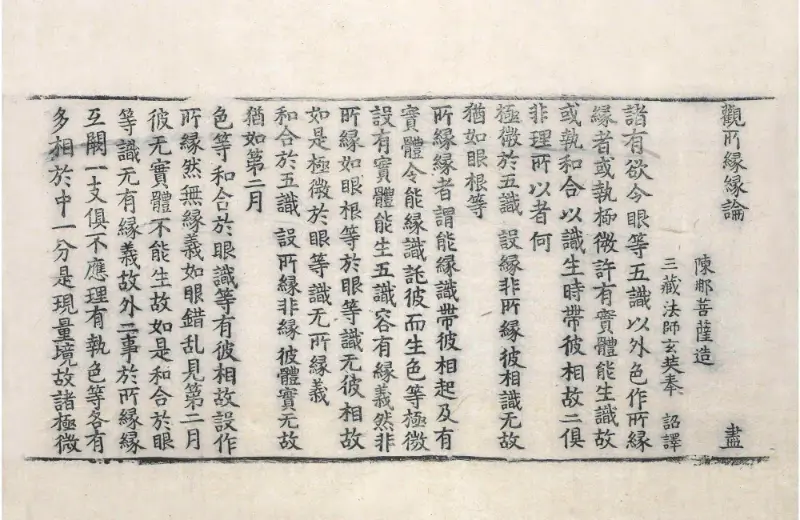 觀所緣緣論 盡
陳那菩薩造
三藏法師玄奘奉 詔譯
諸有欲令眼等五識以外色作所緣
緣者或執極微許有實體能生識故
或執和合以識生時帶彼相故二俱
非理所以者何
極微於五識 設緣非所緣彼相識无故
猶如眼根等
所緣緣者謂能緣識帶彼相起及有
實體令能緣識託彼而生色等極微
設有實體能生五識容有緣義然非
所緣如眼根等於眼等識无彼相故
如是極微於眼等識无所緣義
和合於五識 設所緣非緣彼體實无故
猶如第二月
色等和合於眼識等有彼相故設作
所緣然無緣義如眼錯乱見第二月
彼无實體不能生故如是和合於眼
等識无有緣義故外二事於所緣緣
互闕一支俱不應理有執色等各有
多相於中一分是現量境故諸極微